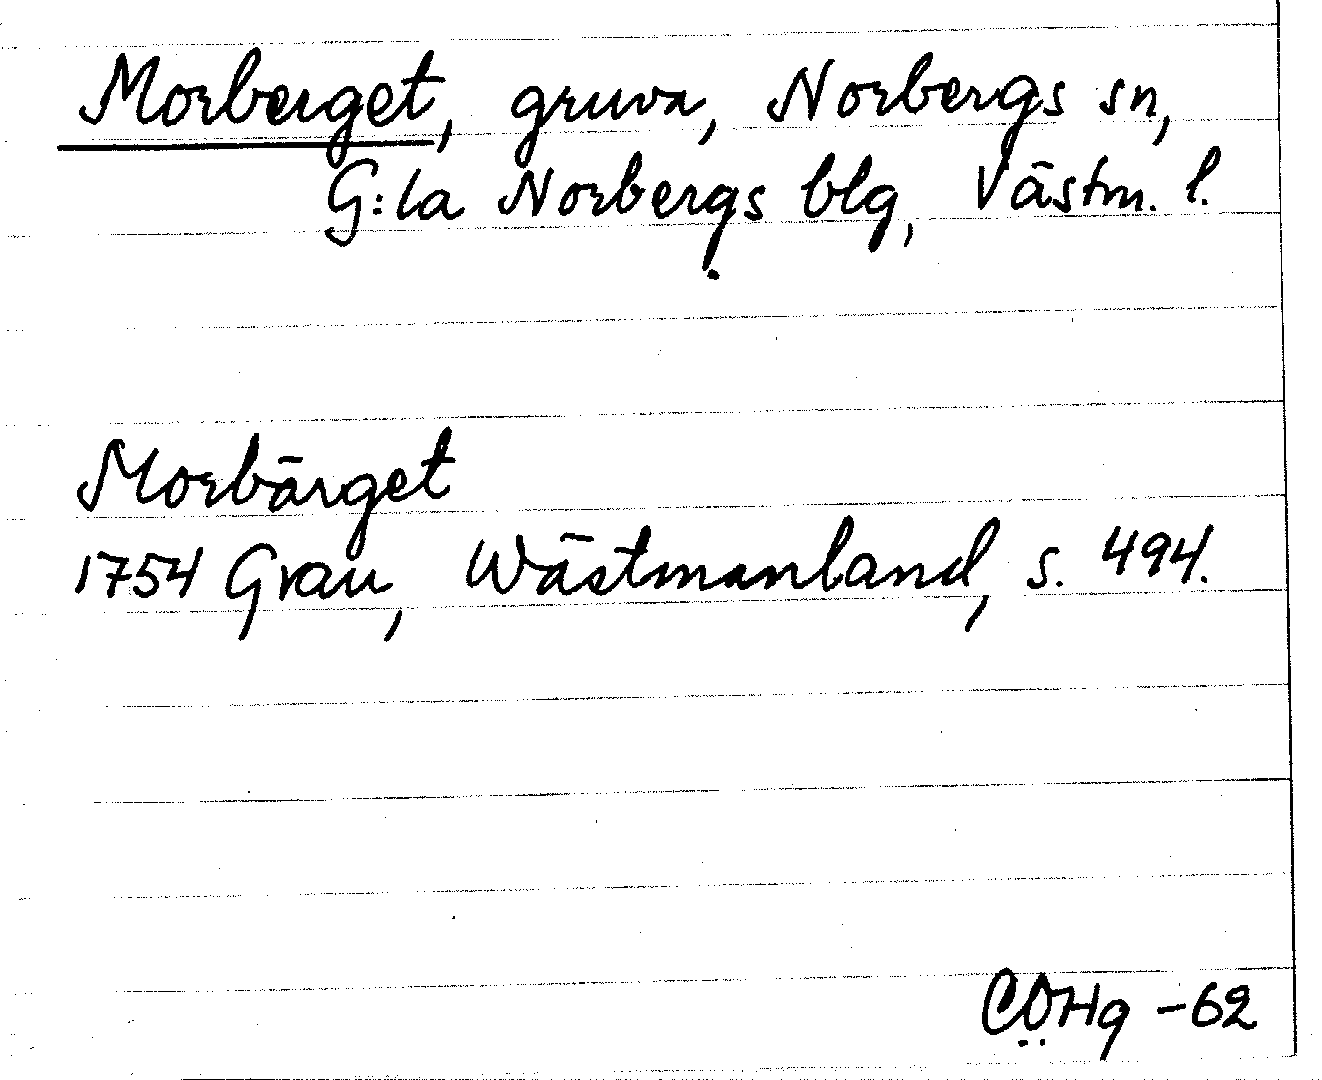 Morberget, gruva, Norbergs sn,
G:la Norbergs blg, Västm. l.
Morbärget
1754 Grau, Wästmanland, s. 494.
CÖHg -62